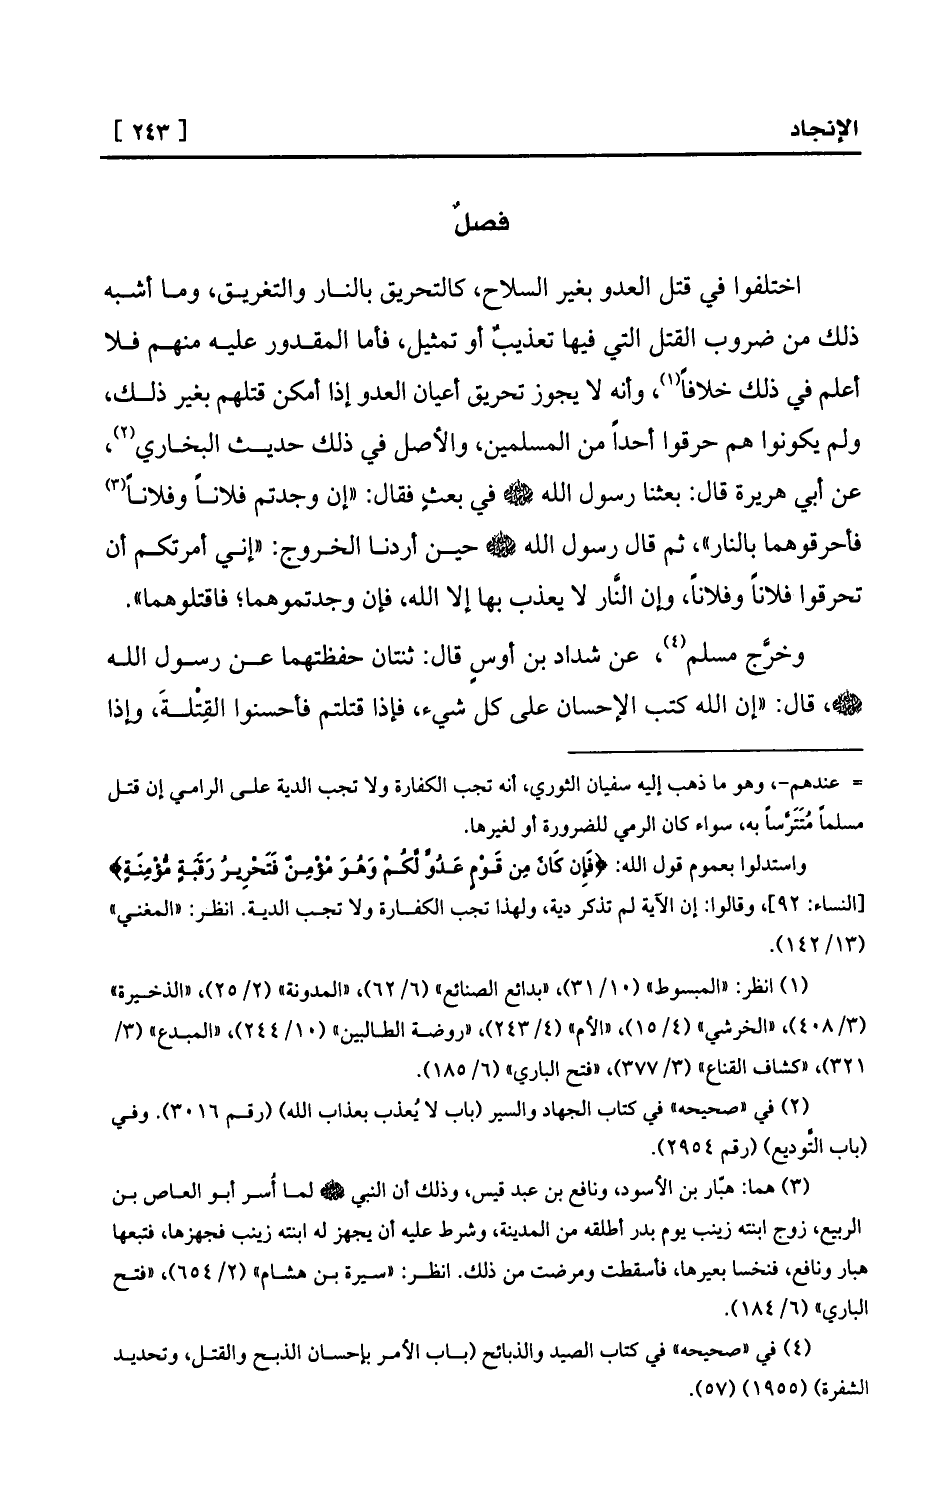 الإنجاد [ ٢٤٣ ]
فصلٌ
اختلفوا في قتل العدو بغير السلاح، كالتحريق بالنار والتغريق، وما أشبه
ذلك من ضروب القتل التي فيها تعذيبٌ أو تمثيل، فأما المقدور عليه منهم فلا
أعلم في ذلك خلافاً(١)، وأنه لا يجوز تحريق أعيان العدو إذا أمكن قتلهم بغير ذلك،
ولم يكونوا هم حرقوا أحداً من المسلمين، والأصل في ذلك حديث البخاري(٢)،
عن أبي هريرة قال: بعثنا رسول الله ﷺ في بعثٍ فقال: «إن وجدتم فلاناً وفلاناً(٣)
فأحرقوهما بالنار»، ثم قال رسول الله ﷺ حين أردنا الخروج: «إني أمرتكم أن
تحرقوا فلاناً وفلاناً، وإن النَّار لا يعذب بها إلا الله، فإن وجدتموهما؛ فاقتلوهما».
وخرَّج مسلم(٤)، عن شداد بن أوسٍ قال: ثنتان حفظتهما عن رسول الله
ﷺ، قال: «إن الله كتب الإحسان على كل شيء، فإذا قتلتم فأحسنوا القِتْلةَ، وإذا
= عندهم-، وهو ما ذهب إليه سفيان الثوري، أنه تجب الكفارة ولا تجب الدية على الرامي إن قتل
مسلماً مُتَتَرَّساً به، سواء كان الرمي للضرورة أو لغيرها.
واستدلوا بعموم قول الله: ﴿فَإِن كَانَ مِن قَوْمٍ عَدُوٍّ لَّكُمْ وَهُوَ مْؤْمِنٌ فَتَحْرِيرُ رَقَبَةٍ مُّؤْمِنَةٍ﴾
[النساء: ٩٢]، وقالوا: إن الآية لم تذكر دية، ولهذا تجب الكفارة ولا تجب الدية. انظر: «المغني»
(١٣/ ١٤٢).
(١) انظر: «المبسوط» (١٠/ ٣١)، «بدائع الصنائع» (٦/ ٦٢)، «المدونة» (٢/ ٢٥)، «الذخيرة»
(٣/ ٤٠٨)، «الخرشي» (٤/ ١٥)، «الأم» (٤/ ٢٤٣)، «روضة الطالبين» (١٠/ ٢٤٤)، «المبدع» (٣/
٣٢١)، «كشاف القناع» (٣/ ٣٧٧)، «فتح الباري» (٦/ ١٨٥).
(٢) في «صحيحه» في كتاب الجهاد والسير (باب لا يُعذب بعذاب الله) (رقم ٣٠١٦). وفي
(باب التَّوديع) (رقم ٢٩٥٤).
(٣) هما: هبّار بن الأسود، ونافع بن عبد قيس، وذلك أن النبي ﷺ لما أُسر أبو العاص بن
الربيع، زوج ابنته زينب يوم بدر أطلقه من المدينة، وشرط عليه أن يجهز له ابنته زينب فجهزها، فتبعها
هبار ونافع، فنخسا بعيرها، فأسقطت ومرضت من ذلك. انظر: «سيرة بن هشام» (٢/ ٦٥٤)، «فتح
الباري» (٦/ ١٨٤).
(٤) في «صحيحه» في كتاب الصيد والذبائح (باب الأمر بإحسان الذبح والقتل، وتحديد
الشفرة) (١٩٥٥) (٥٧).